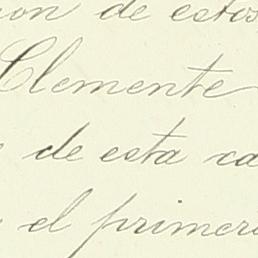 ion de estos
Clemente
de esta ca
el primer